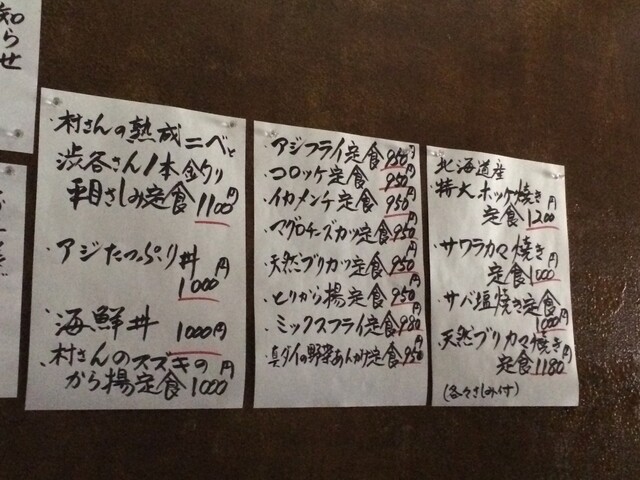 知らせ
・村さんの熟成ニベと
渋谷さん1本釣り
平目さしみ定食1100円
・アジたっぷり丼
1000円
・海鮮丼 1000円
・村さんのスズキの
から揚定食1000円
・アジフライ定食950円
・コロッケ定食950円
・イカメンチ定食950円
・マグロチーズカツ定食950円
・天然ブリカツ定食950円
・とりから揚定食950円
・ミックスフライ定食980円
・真ダイの野菜あんかけ定食950円
北海道産
・特大ホッケ焼き
定食1200円
・サワラカマ焼き
定食1000円
・サバ塩焼き定食
1000円
・天然ブリカマ焼き
定食1180円
(各々さしみ付)